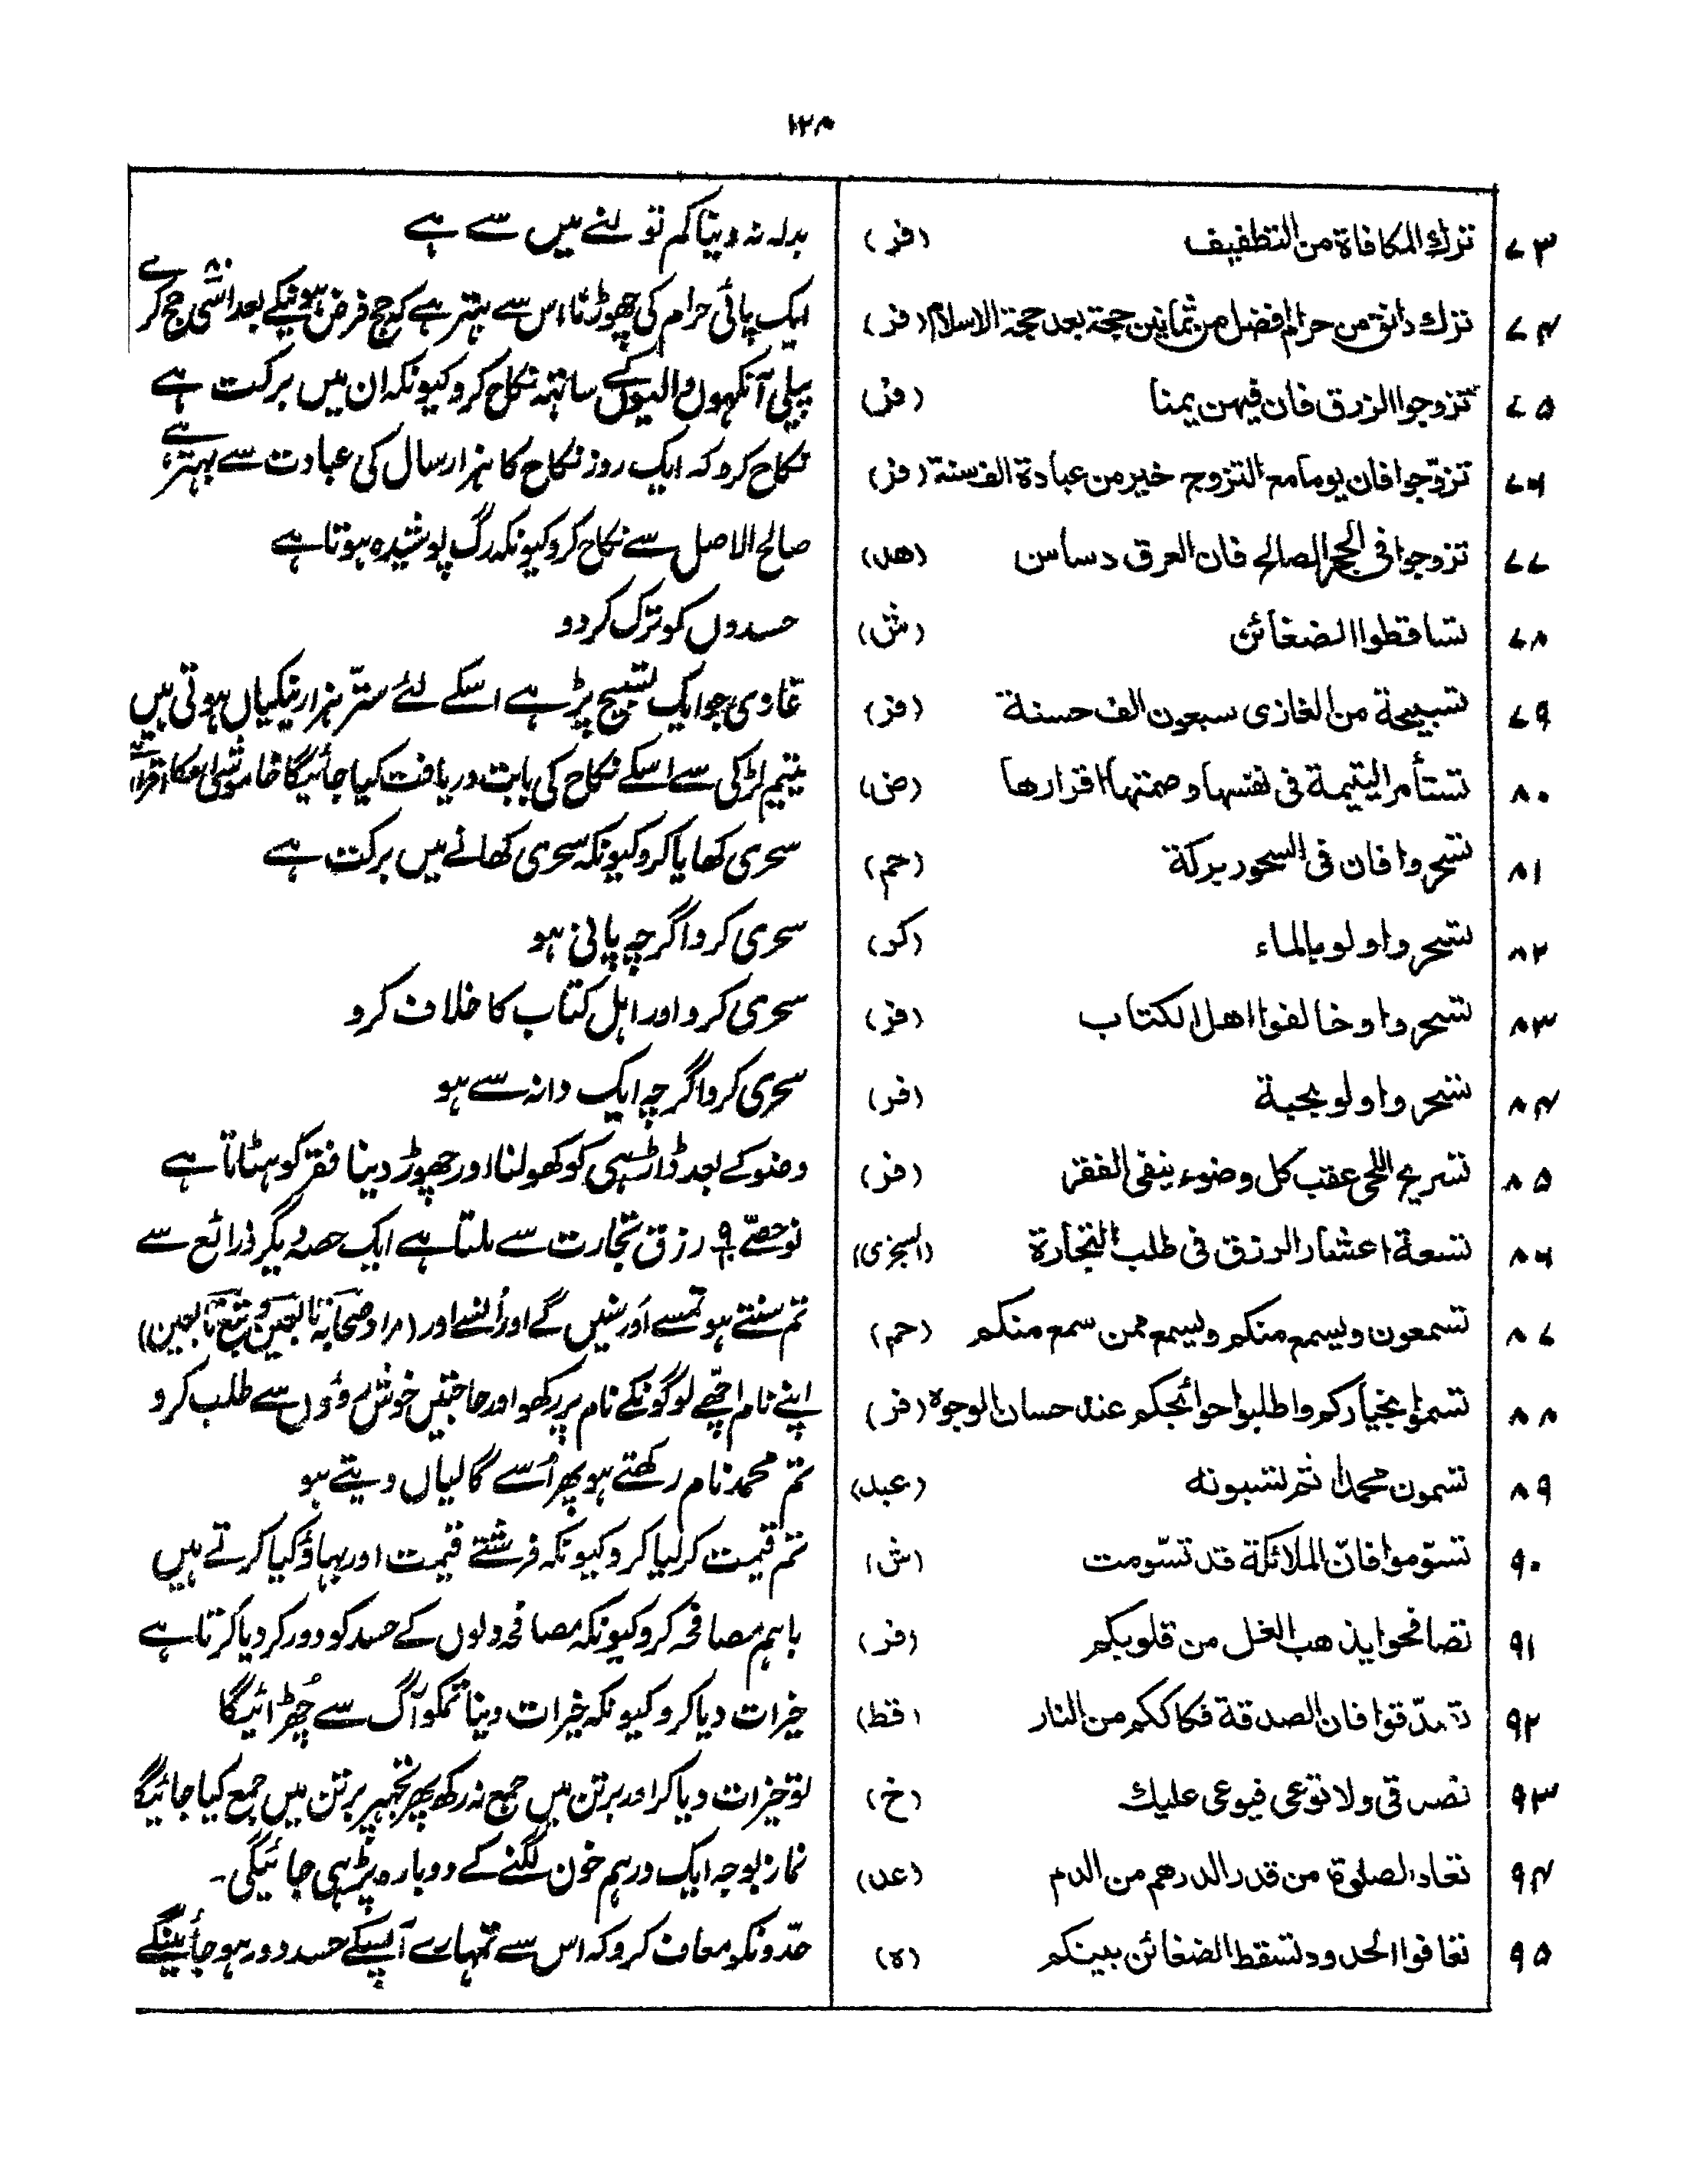 ۱۲۸
۷۳ ترك المكافاة من التطفيف (فر) بدلہ نہ دینا کم تولنے میں سے ہے
۷۴ ترك دانق من حرام افضل من ثمانين حجة بعد حجة الاسلام (فر) ایک پائی حرام کی چھوڑنا اس سے بہتر ہے کہ حج فرض ہونیکے بعد اسّی ۸۰ حج کرے
۷۵ تزوجوا الزرق فان فيهن يمنا (فر) پیلی آنکہوں والیوں کے ساتہہ نکاح کرو کیونکہ ان میں برکت ہے
۷۶ تزوّجوا فان يوما مع التزوج خير من عبادة الف سنة (فر) نکاح کرو کہ ایک روز نکاح کا ہزار سال کی عبادت سے بہتر ہے
۷۷ تزوجوا فى الحجر الصالح فان العرق دساس (هد) صالح الاصل سے نکاح کرو کیونکہ رگ پوشیدہ ہوتا ہے
۷۸ تساقطوا الضغائن (ش) حسدوں کو ترک کردو
۷۹ تسبيحة من الغازى سبعون الف حسنة (فر) غازی جو ایک تسبیح پڑہے اسکے لئے ستّر ہزار نیکیاں ہوتی ہیں
۸۰ تستأمر اليتيمة فى نفسها وصمتها اقرارها (ض) یتیم لڑکی سے اسکے نکاح کی بابت دریافت کیا جائیگا خاموشی اسکا اقرار ہے
۸۱ تسحروا فان فى السحور بركة (حم) سحری کھایا کرو کیونکہ سحری کھانے میں برکت ہے
۸۲ تسحروا ولو بالماء (كر) سحری کرو اگرچہ پانی ہو
۸۳ تسحروا وخالفوا اهل الكتاب (فر) سحری کرو اور اہل کتاب کا خلاف کرو
۸۴ تسحروا ولو بحبة (فر) سحری کرو اگرچہ ایک دانہ سے ہو
۸۵ تسريح اللحى عقب كل وضوء ينفى الفقر (فر) وضو کے بعد ڈاڑہی کو کھولنا اور چھوڑ دینا فقر کو ہٹاتا ہے
۸۶ تسعة اعشار الرزق فى طلب التجارة (السجزى) نو حصے ۹/۱۰ رزق تجارت سے ملتا ہے ایک حصہ دیگر ذرائع سے
۸۷ تسمعون ويسمع منكم ويسمع ممن سمع منكم (حم) تم سنتے ہو تمسے اَور سنیں گے اور اُنسے اور (مراد صحابہ تابعین و تبع تابعین)
۸۸ تسموا بخياركم واطلبوا حوائجكم عند حسان الوجوه (فر) اپنے نام اچھے لوگونکے نام پر رکھو اور حاجتیں خوش رُوؤں سے طلب کرو
۸۹ تسمون محمدا ثم تسبونه (عبد) تم محمد نام رکھتے ہو پھر اُسے گالیاں دیتے ہو
۹۰ تسوّموا فانّ الملائكة قد تسّومت (ش) تم قیمت کرلیا کرو کیونکہ فرشتے قیمت اور بہاؤ کیا کرتے ہیں
۹۱ تصافحوا يذهب الغل من قلوبكم (فر) باہم مصافحہ کرو کیونکہ مصافحہ دلوں کے حسد کو دور کردیا کرتا ہے
۹۲ تصدّقوا فان الصدقة فكاككم من النار (قط) خیرات دیا کرو کیونکہ خیرات دینا تمکو آگ سے چُھڑائیگا
۹۳ تصدقى ولا توعى فيوعى عليك (خ) تو خیرات دیا کر اور برتن میں جمع نہ رکھ پھر تجہپر برتن میں جمع کیا جائیگا
۹۴ تعاد الصلوة من قدر الدرهم من الدم (عد) نماز بوجہ ایک درہم خون لگنے کے دوبارہ پڑہی جائیگی۔
۹۵ تعافوا الحدود تسقط الضغائن بينكم (ه) حدّونکو معاف کرو کہ اس سے تمہارے آپسکے حسد دور ہو جائینگے